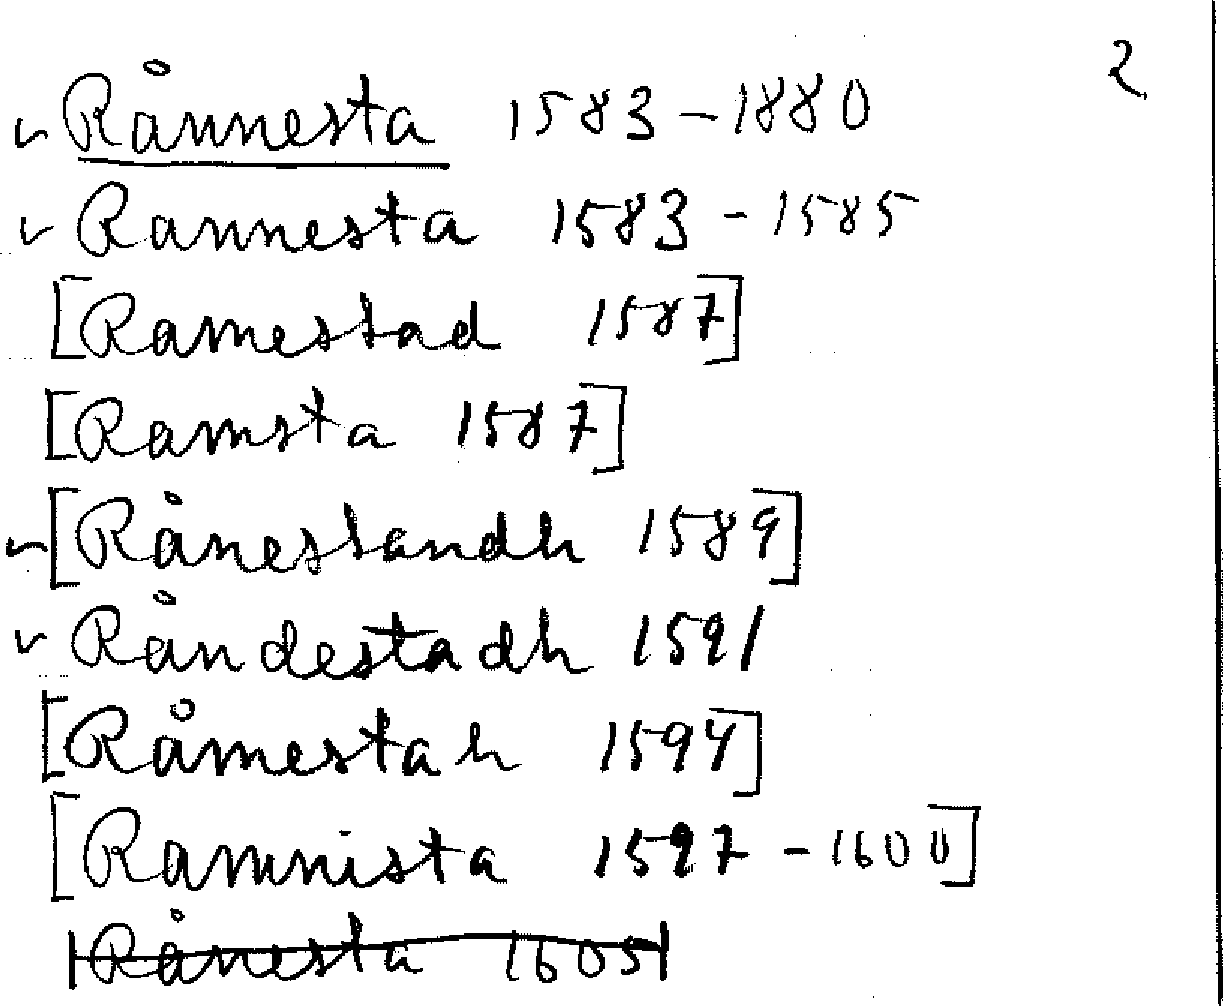 2
✓ Rånnesta 1583-1880
✓ Rannesta 1583-1585
[Ramestad 1587]
[Ramsta 1587]
✓ [Rånestandh 1589]
✓ Råndestadh 1591
[Råmestah 1594]
[Ramnista 1597-1600]
Rånesta 1605